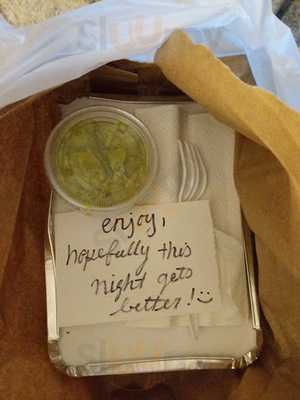 sluurpy
enjoy,
hopefully this
night gets
better! :)
sluurpy